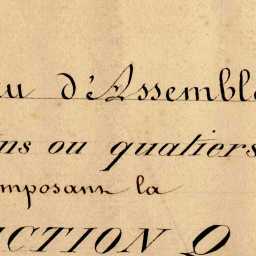 au d'Assembl
ns ou quatiers
mposant la
CTION Q